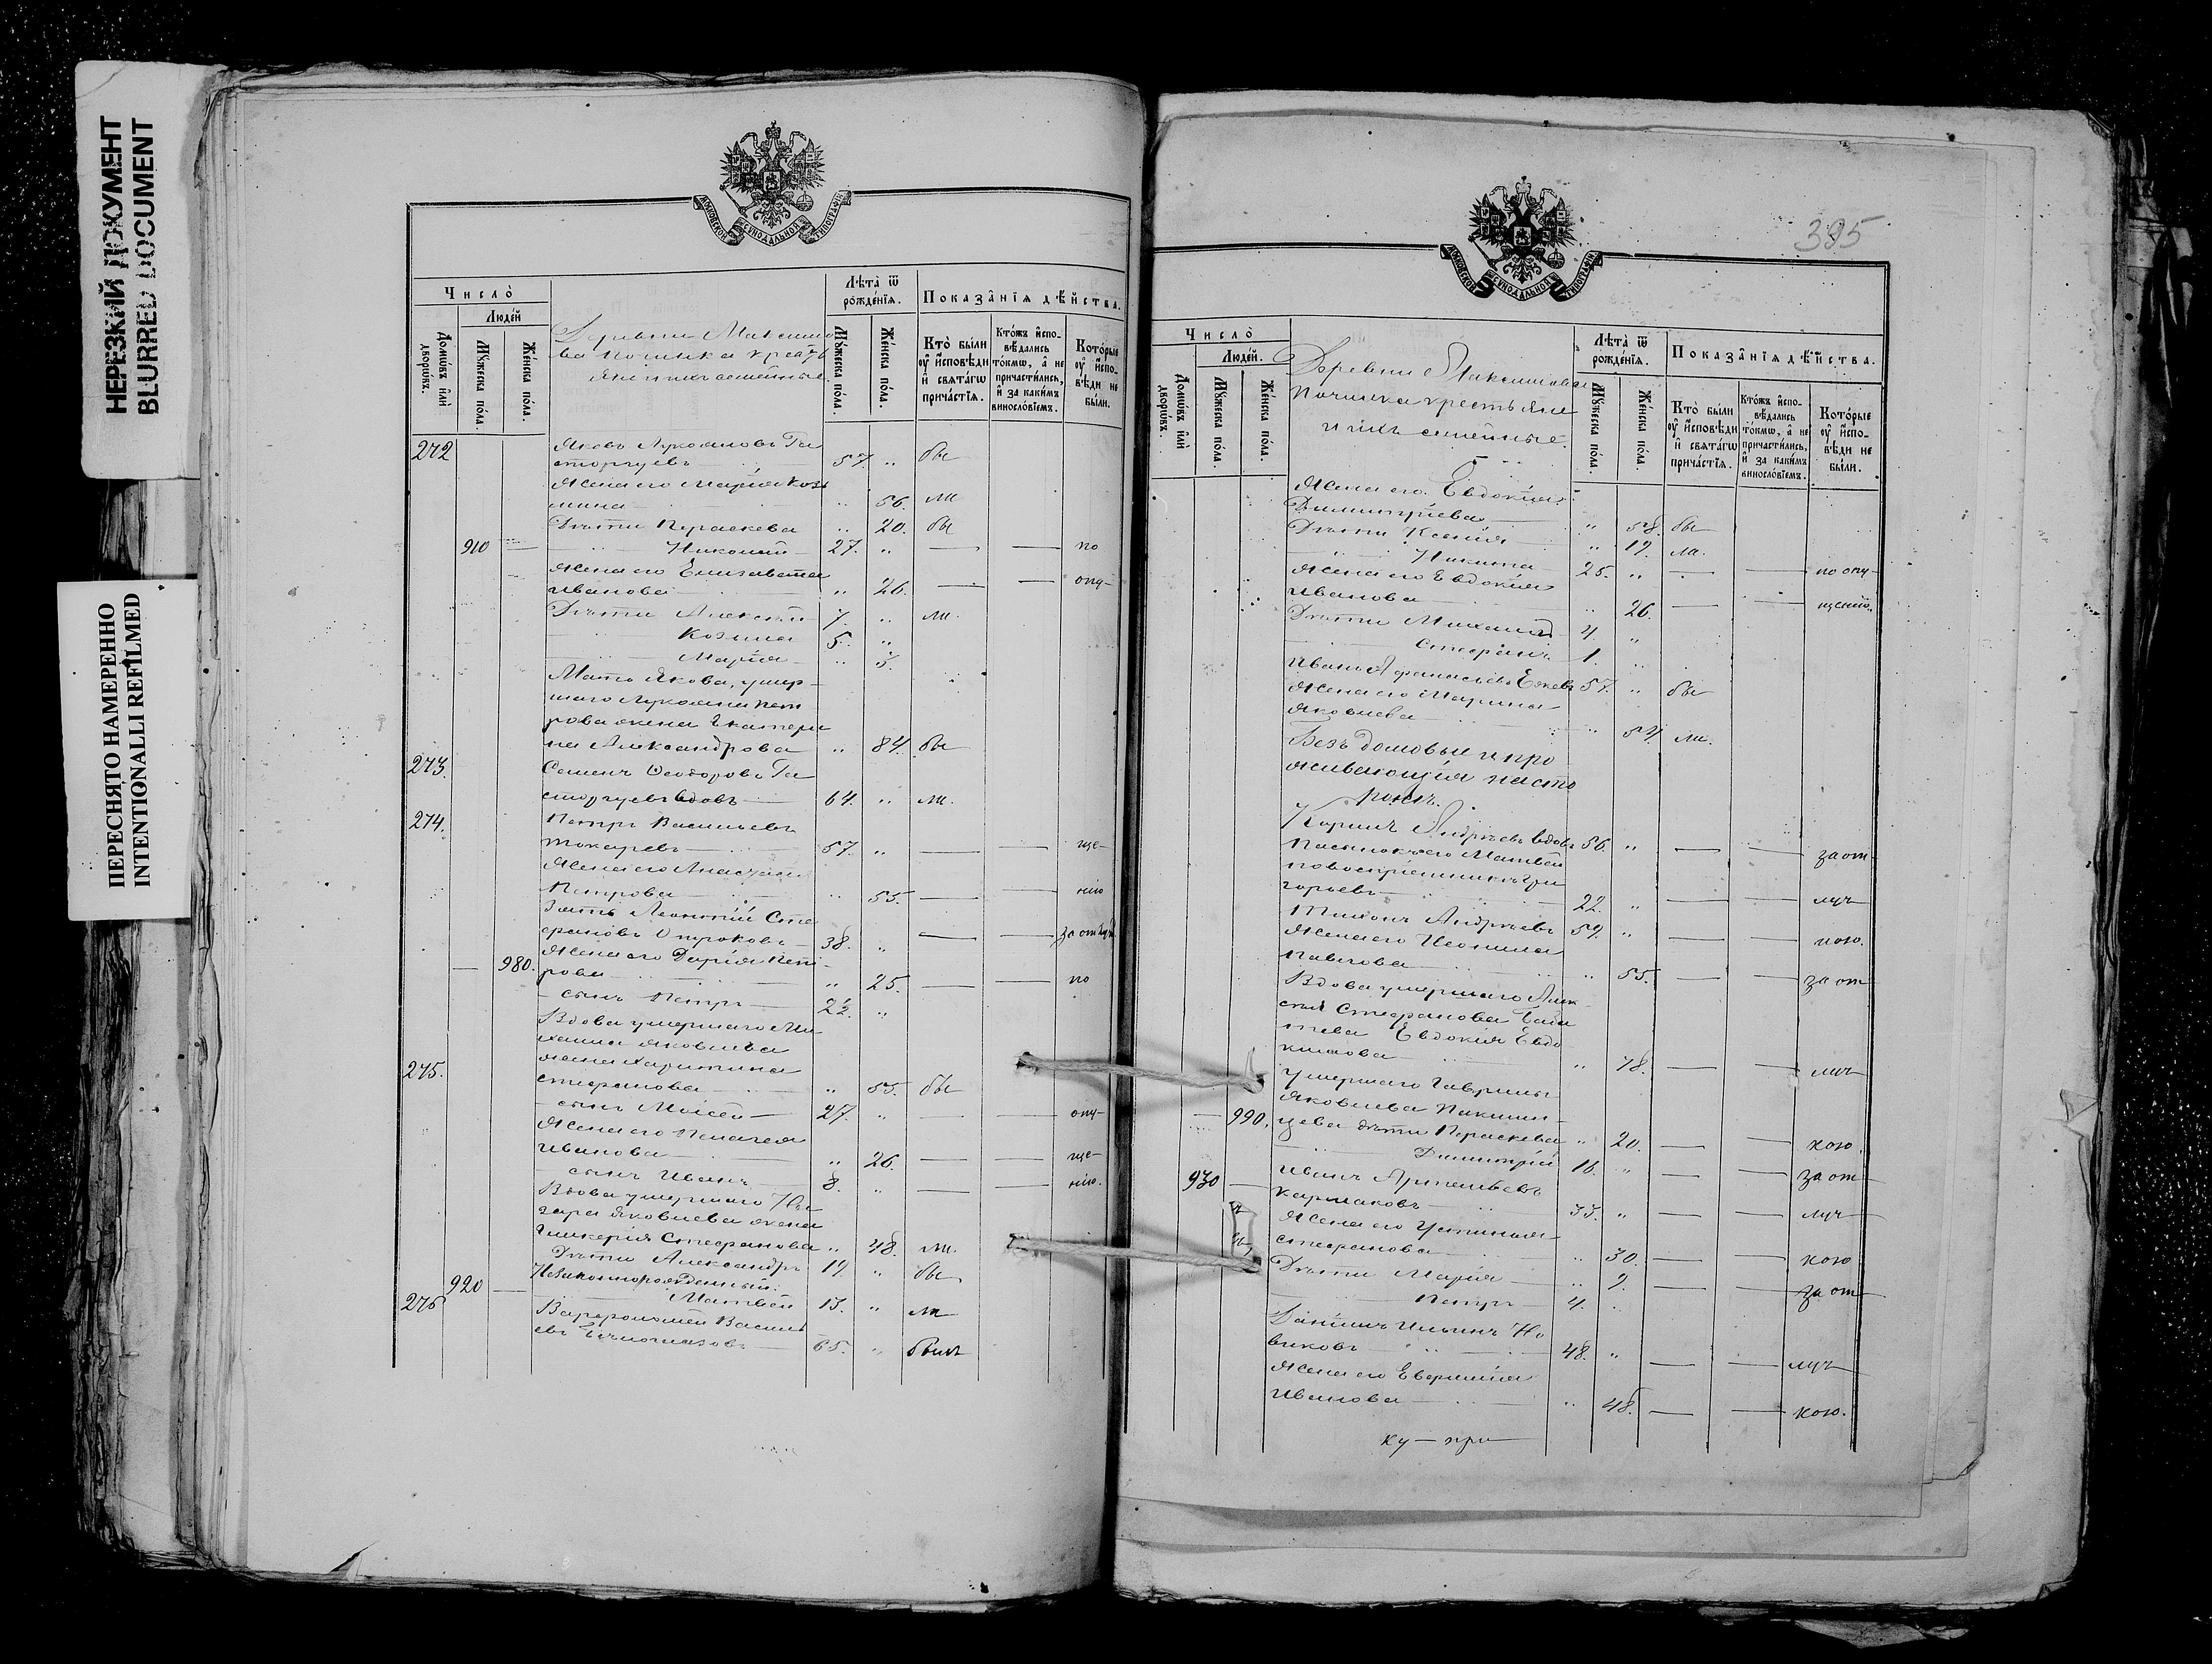 НЕРЕЗКИЙ ДОКУМЕНТ
BLURRED DOCUMENT
ПЕРЕСНЯТО НАМЕРЕННО
INTENTIONALLI REFILMED
МОСКОВСКОЙ СУНОДАЛЬНОЙ ТИПОГРАФІИ
Число̀
Люде́й
Домѡ́въ и҆лѝ дворѡ́въ.
Мꙋ́жеска по́ла.
Же́нска по́ла.
Деревни Максимо
ва Починка крестья
не и ихъ семейные
Лѣ́та ѿ рожде́нїѧ.
Мꙋ́жеска по́ла.
Же́нска по́ла.
Показа̑нїѧ дѣ́йства.
Кто̀ бы́ли ᲂу҆ и҆сповѣ́ди и҆ свѧта́гѡ прича́стїѧ.
Кто́жъ и҆спо-вѣ́дались то́кмѡ, а҆ не причасти́лись, и҆ за каки́мъ винослові́емъ.
Кото́рые ᲂу҆ и҆спо-вѣ́ди не бы́ли.
272 Яковъ Лукояновъ Га
сторгуевъ 57. " бы
Жена его Марія Коз
мина " 56. ли
Дѣти Параскева " 20. бы
910 — Николай 27. " — — по
Жена его Елизавета
Иванова " 26. — — опу-
Дѣти Алексѣй 7. " ли.
Козма 5. "
Марія " 3.
Мать Якова, умер-
шаго Лукояна Пет
рова жена Екатери
на Александрова " 84. бы
273. Семенъ Ѳеодоровъ Га
сторгуевъ вдовъ 64. " ли.
274. Петръ Васильевъ
Токаревъ 57. " — — ще-
Жена его Анастасія
Петрова " 55. — — нію
Зять Леонтій Сте
фановъ 38. " — — за отлуч
Жена его Дарія Пет-
980. рова " 25. — — по
сынъ Петръ 2½. "
Вдова умершаго Ми-
хаила Яковлева
275. жена Харитина
Стефанова " 55. бы
сынъ Моисей 27. " — — опу-
Жена его Пелагея
Иванова " 26. — — ще-
сынъ Иванъ 8. " — — нію.
Вдова умершаго На
зара Яковлева жена
Гликерія Стефанова " 48. ли.
Дѣти Александръ 19. " бы
920 — Незаконнорожденный
Матвей 13. " ли
276 Варфоломей Василь
евъ 65. " былъ
395
МОСКОВСКОЙ СУНОДАЛЬНОЙ ТИПОГРАФІИ
Число̀
Люде́й.
Домѡ́въ и҆лѝ дворѡ́въ.
Мꙋ́жеска по́ла.
Же́нска по́ла.
Деревни Максимова
Починка крестьяне
и ихъ семейные.
Лѣ́та ѿ рожде́нїѧ.
Мꙋ́жеска по́ла.
Же́нска по́ла.
Показа̑нїѧ дѣ́йства.
Кто̀ бы́ли ᲂу҆ и҆сповѣ́ди и҆ свѧта́гѡ прича́стїѧ.
Кто́жъ и҆спо-вѣ́дались то́кмѡ, а҆ не причасти́лись, и҆ за каки́мъ винослові́емъ.
Кото́рые ᲂу҆ и҆спо-вѣ́ди не бы́ли.
Жена его Евдокія
Димитріева " 58. бы
Дѣти Ксенія " 19. ли.
Никита 25. " — — по опу-
Жена его Евдокія
Иванова " 26. — — щенію.
Дѣти Михаилъ 4. "
Стефанъ 1. "
Иванъ Афанасьевъ 57. " бы
Жена его Марина
Яковлева " 54. ли.
Бездомовые и про
живающія на сто
ронѣ.
Карпъ Андреевъ вдовъ 56. " — — за от
Пасынокъ его Матвей
новоспріемникъ Гри
горьевъ 22. " — — луч
Тихонъ Андреевъ 59. " — — кою.
Жена его Неонила
Павлова " 55. — — за от
Вдова умершаго Алек
сѣя Стефанова
Евдокія Евдо
кимова " 78. — — луч
умершаго Гавріила
Яковлева
990. дѣти Параскева " 20. — — кою.
Димитрій 16. " — — за от
930 — Иванъ
33. " — — луч
Жена его Устинія
Стефанова " 30. — — кою
Дѣти Марія " 9. — — за от
Петръ 4. "
Даніилъ Ильинъ Но
виковъ 48. " — — луч
Жена его Евфимія
Иванова " 48. — — кою.